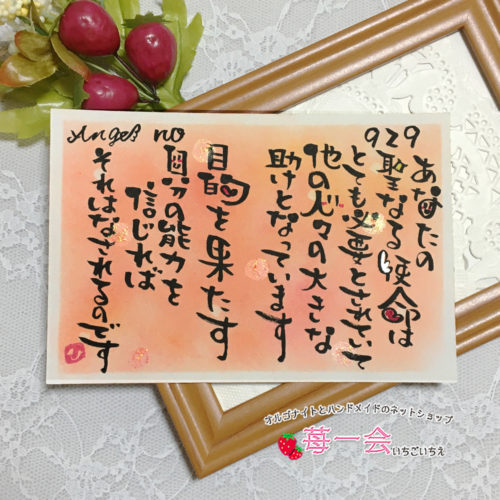 Angel no
929
あなたの
聖なる使命は
とても必要とされていて
他の人々の大きな
助けとなっています
目的を果たす
自分の能力を
信じれば
それはなされるのです
オルゴナイトとハンドメイドのネットショップ
苺一会 いちごいちえ